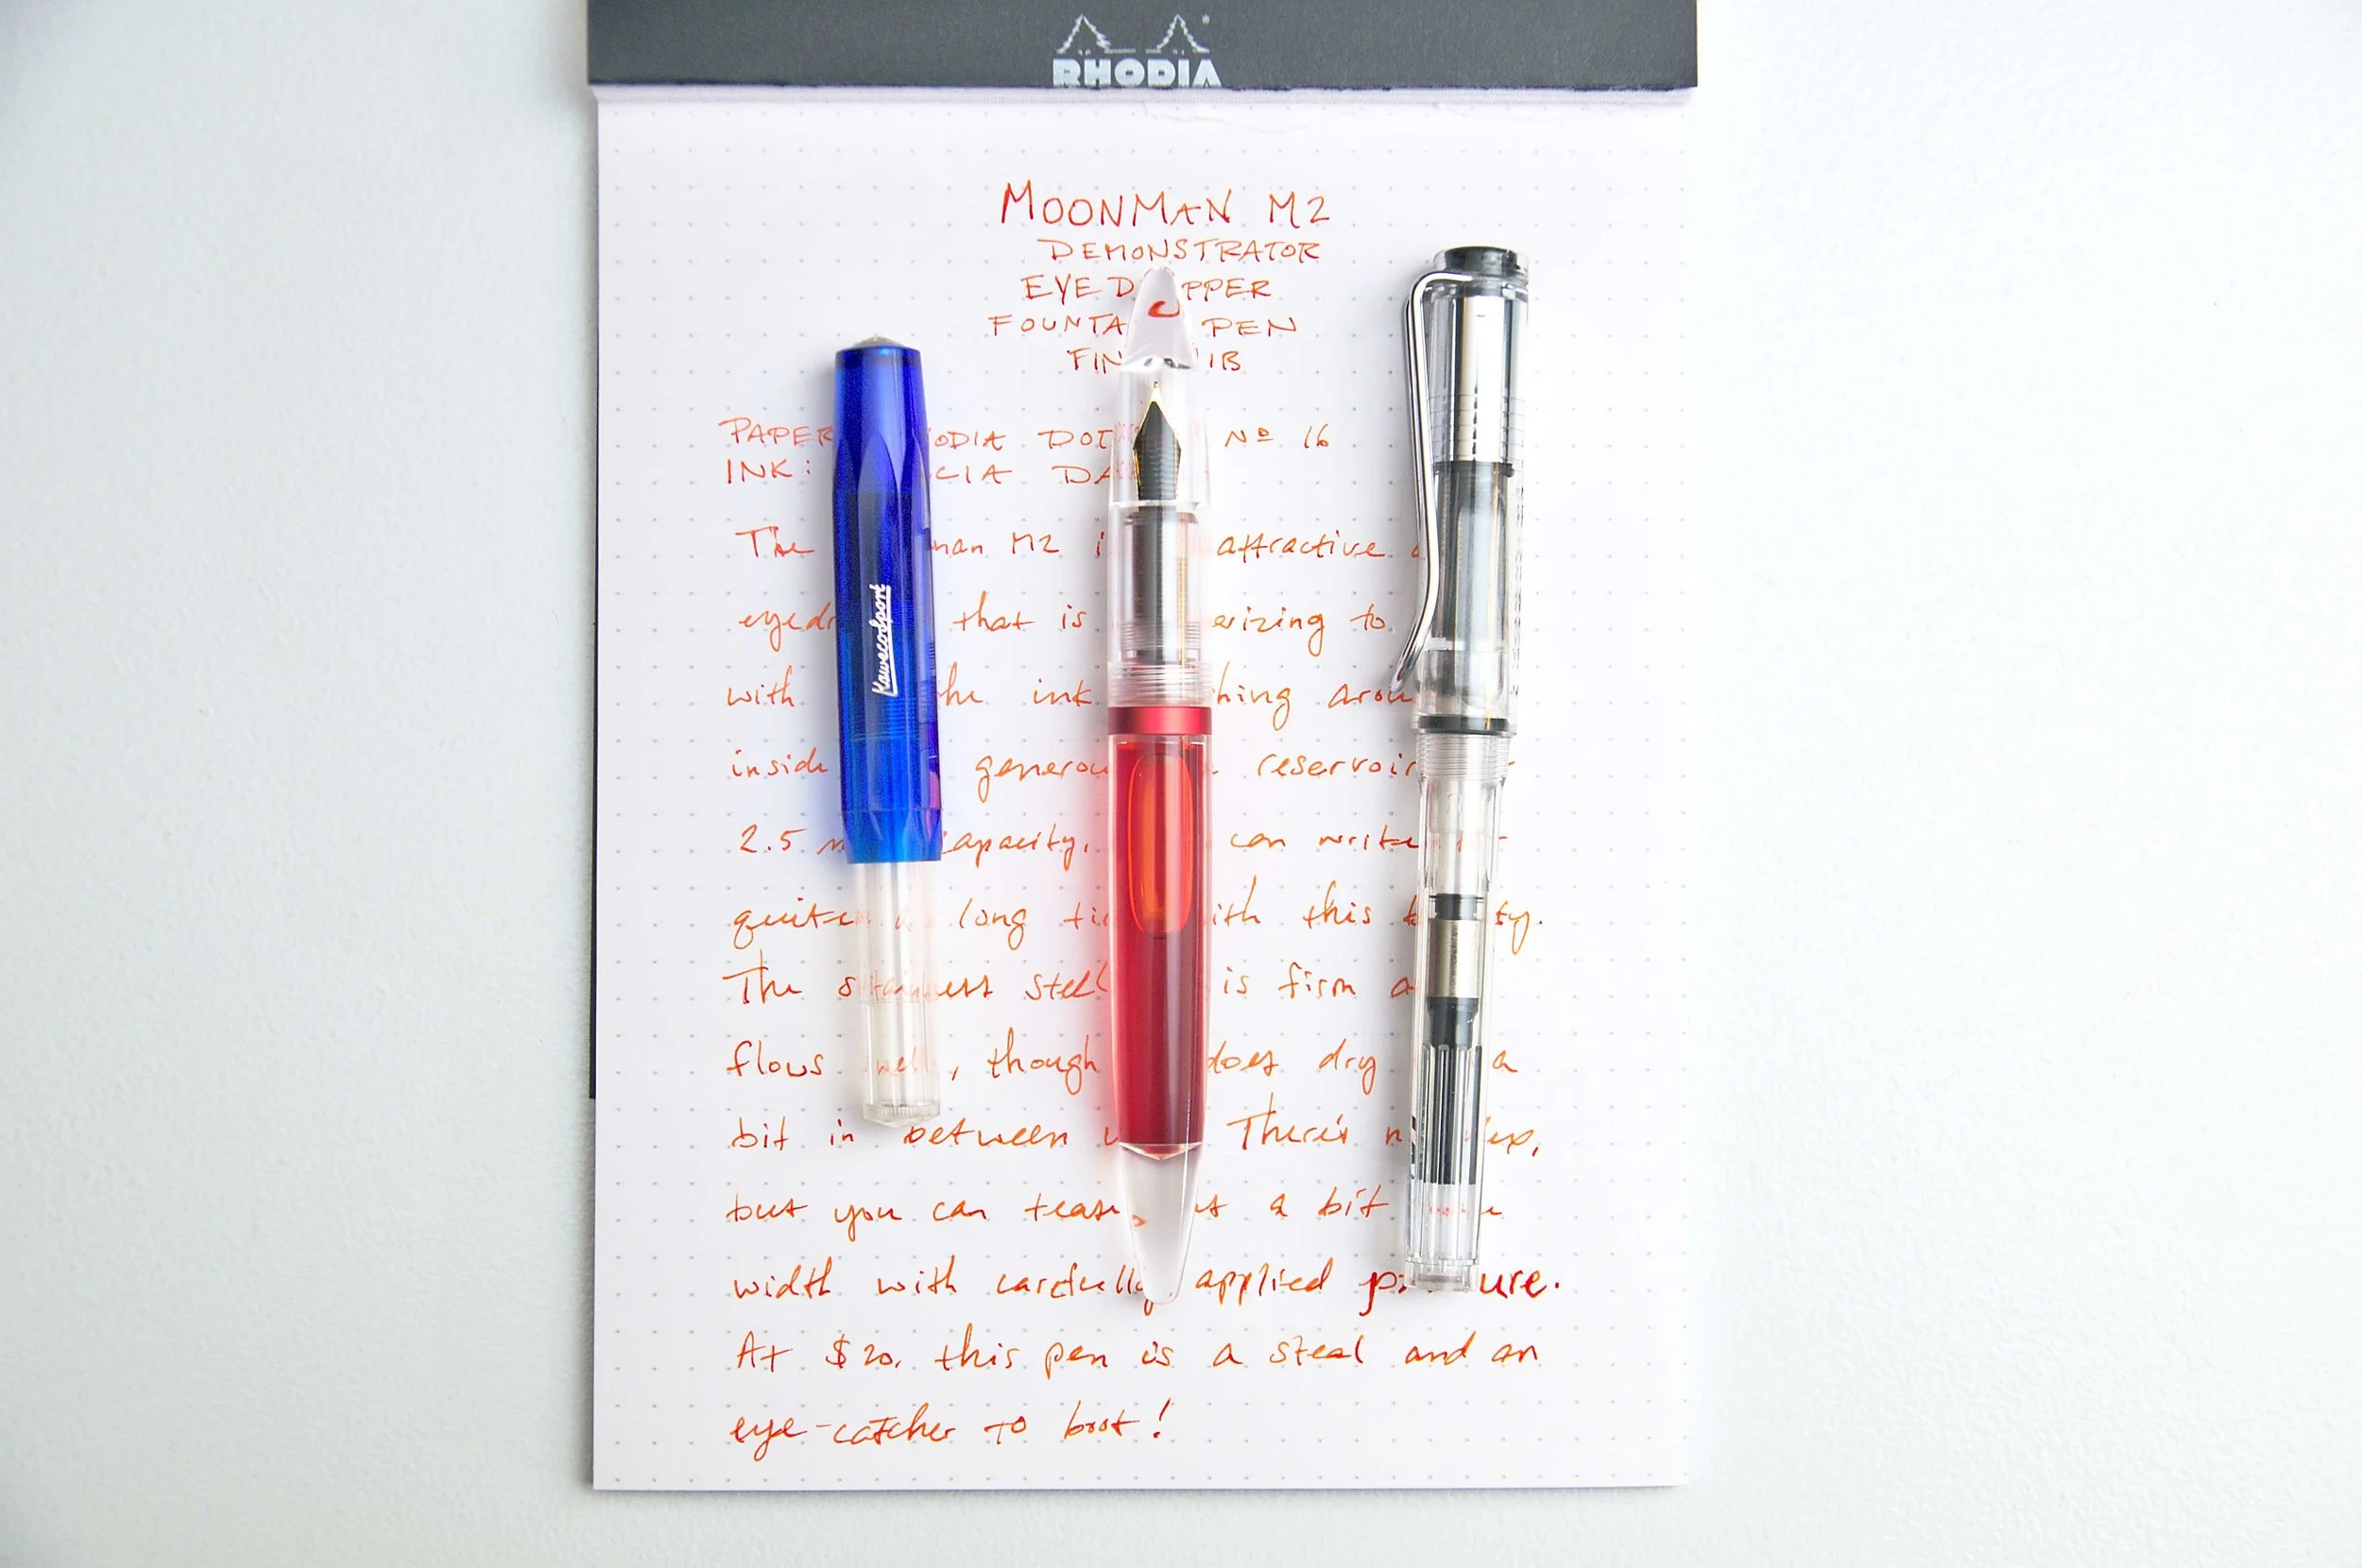 RHODIA
MOONMAN M2
DEMONSTRATOR
EYED PPER
FOUNTA PEN
FIN IB
PAPER ODIA DOT Nº 16
INK: CIA DA
The man M2 i attractive
eyedr that is erizing to
with he ink hing arou
inside generou reservoir
2.5 m capacity, can write
quite a long ti ith this b ty.
The stainless steel is firm a
flows well, though does dry a
bit in between There's n lex,
but you can teas a bit
width with carefully applied p ure.
At $20, this pen is a steal and an
eye-catcher to boot!
Kaweco Sport